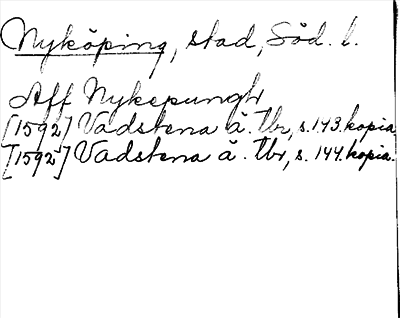 Nyköping, stad, Söd. l.
Aff Nykepungh
[1592] Vadstena ä. Tbr, s. 143. kopia
[1592] Vadstena ä. Tbr, s. 144. kopia.